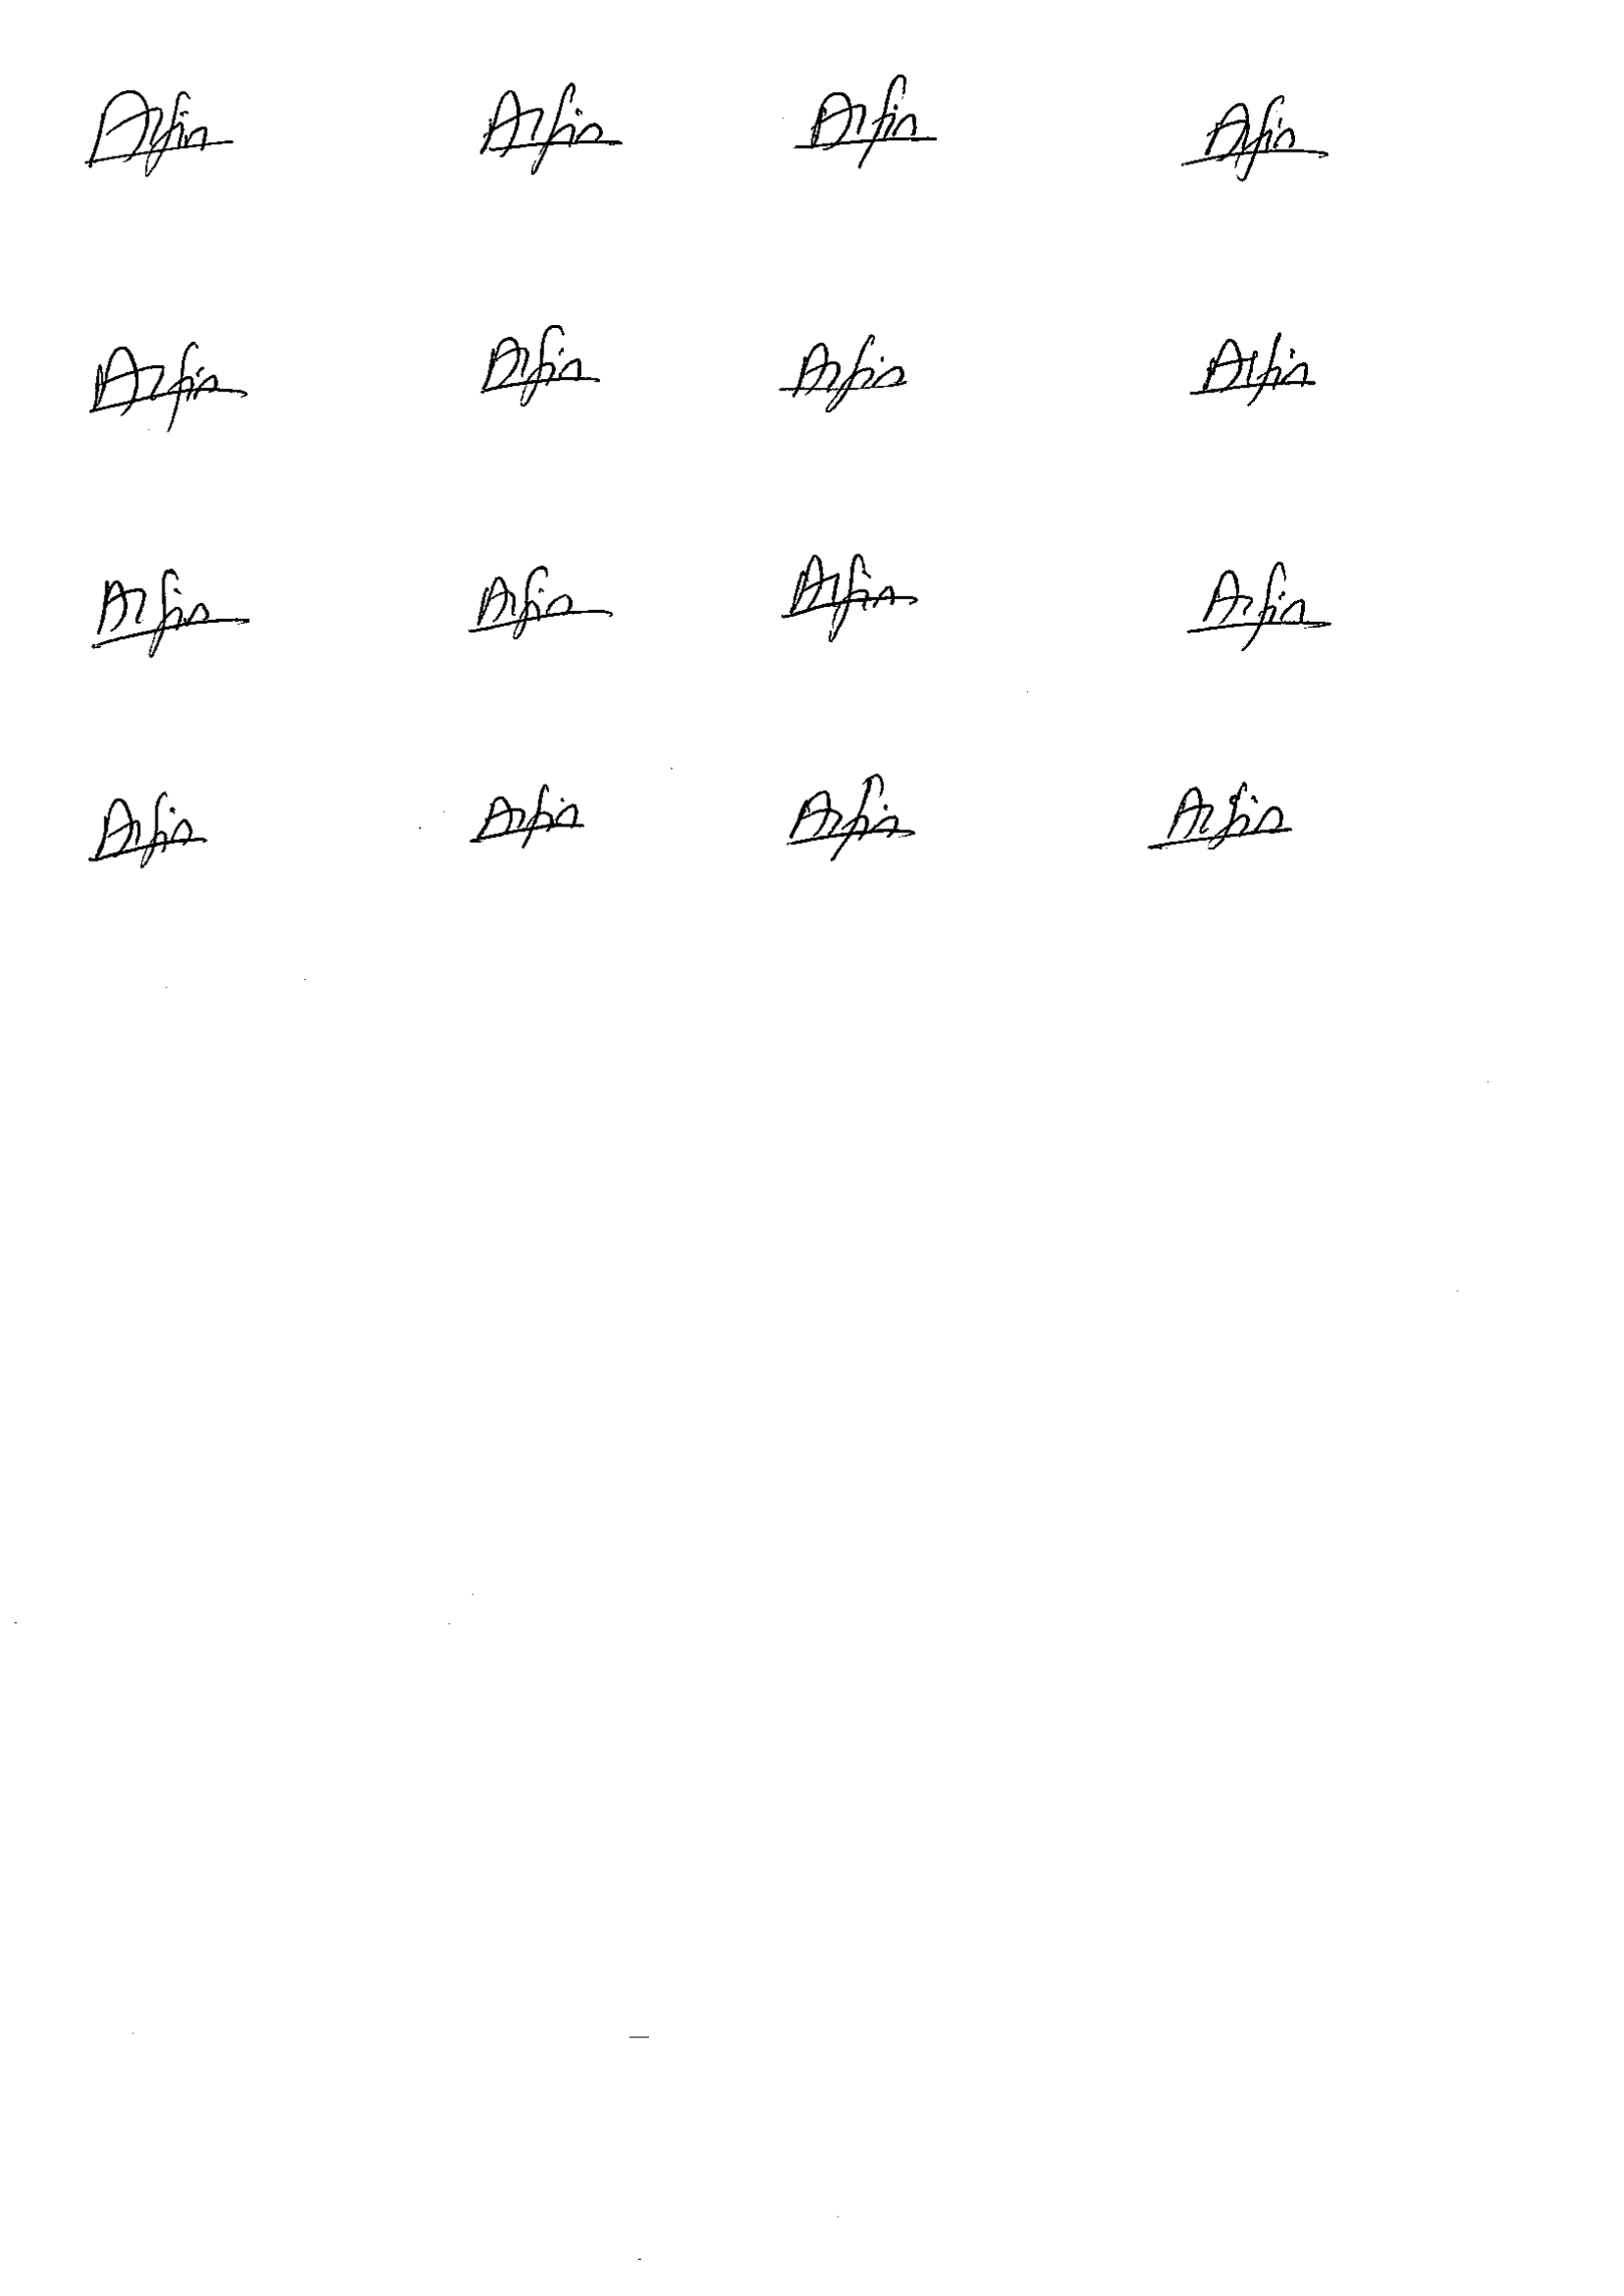 Arfin Arfin Arfin Arfin
Arfin Arfin Arfin Arfin
Arfin Arfin Arfin Arfin
Arfin Arfin Arfin Arfin